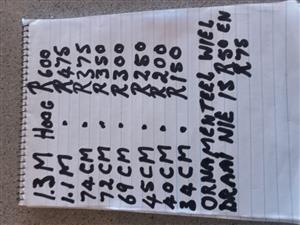 1.3 M HOOG R600
1.1 M . R475
74 CM . R375
72 CM . R350
69 CM . R300
45 CM . R250
40 CM . R200
34 CM . R150
ORNAMENTEEL WIEL
DRAAI NIE IS R50 EN
R75